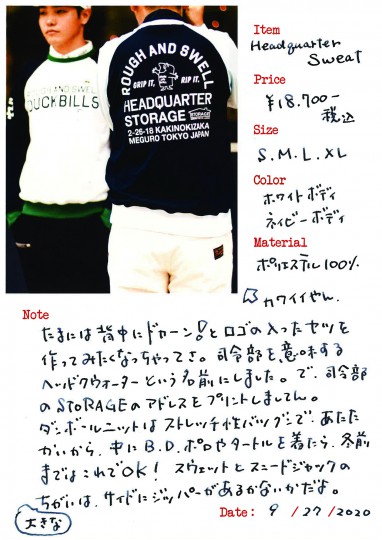 ROUGH AND SWELL
DUCKBILLS
ROUGH AND SWELL
GRIP IT, RIP IT.
HEADQUARTER
STORAGE
2-26-18 KAKINOKIZAKA
MEGURO TOKYO JAPAN
Item
Headquarter
Sweat
Price
¥18.700-
税込
Size
S.M.L.XL
Color
ホワイトボディ
ネイビーボディ
Material
ポリエステル100%
カワイイやん。
Note
たまには背中にドカーン!とロゴの入ったヤツを
作ってみたくなっちゃってさ。司令部を意味する
ヘッドクウォーターという名前にしました。で、司令部
のSTORAGEのアドレスをプリントしましてん。
ダンボールニットはストレッチ性バツグンで、あたた
かいから、中にB.D.ポロやタートルを着たら、冬前
まではこれでOK! スウェットとスニードジャックの
ちがいは、サイドにジッパーがあるかないかだよ。
大きな
Date: 9 / 27 / 2020